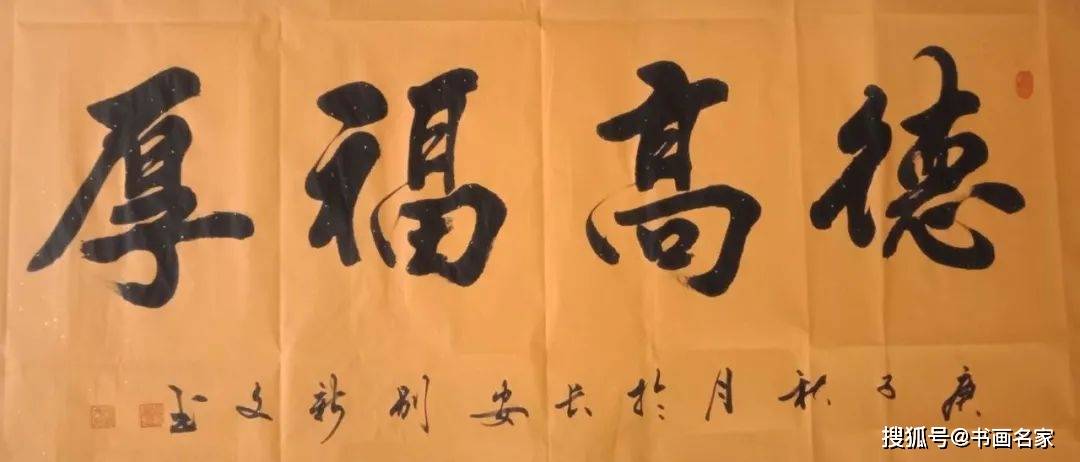 德高福厚
庚子秋月於长安新文
搜狐号@书画名家